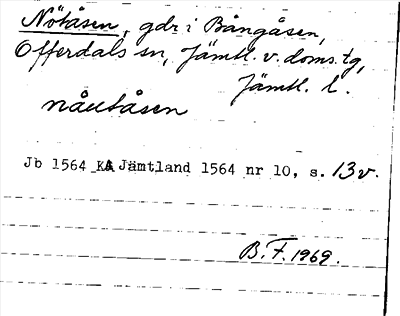 Nötåsen, gdr i Bångåsen,
Offerdals sn, Jämtl. v. doms. tg,
Jämtl. l.
nåutåsen
Jb 1564 KA Jämtland 1564 nr 10, s. 13v.
B. F. 1969.